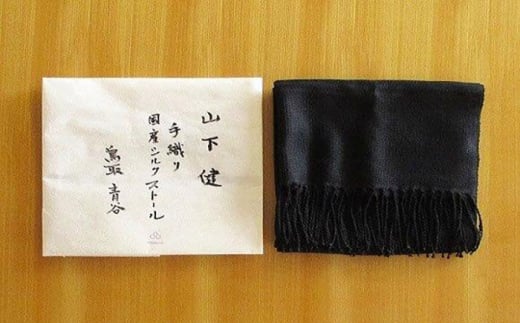 山下健
手織り
国産シルクストール
鳥取青谷